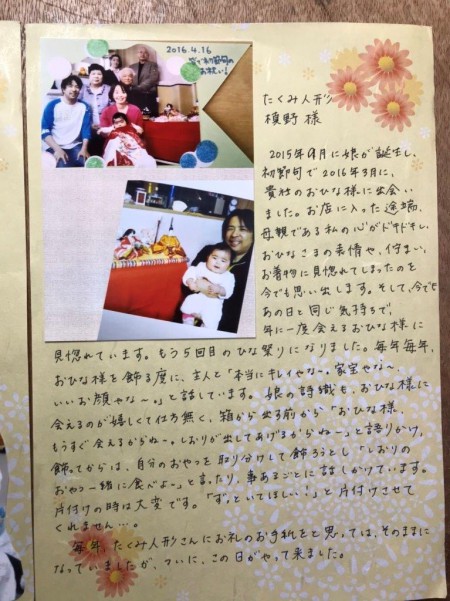 2016.4.16
初節句の
お祝い！
たくみ人形
槙野 様
2015年9月に娘が誕生し、
初節句で2016年3月に、
貴社のおひな様に出会い
ました。お店に入った途端、
母親である私の心がドキドキし、
おひなさまの表情や、佇まい、
お着物に見惚れてしまったのを
今でも思い出します。そして、今でも
あの日と同じ気持ちで、
年に一度会えるおひな様に
見惚れています。もう5回目のひな祭りになりました。毎年毎年、
おひな様を飾る度に、主人と「本当にキレイやな～、家宝やな～、
いいお顔やな～。」と話しています。娘の詩織も、おひな様に
会えるのが嬉しくて仕方無く、箱から出る前から「おひな様、
もうすぐ会えるからね～。しおりが出してあげるからね～」と語りかけ、
飾ってからは、自分のおやつを取り分けして飾ろうとし「しおりの
おやつ一緒に食べよ～」と言ったり、事あるごとに話しかけています。
片付けの時は大変です。「ずっといてほしい！」と片付けさせて
くれません…。
毎年、たくみ人形さんにお礼のお手紙をと思っては、そのままに
なっていましたが、ついに、この日がやって来ました。